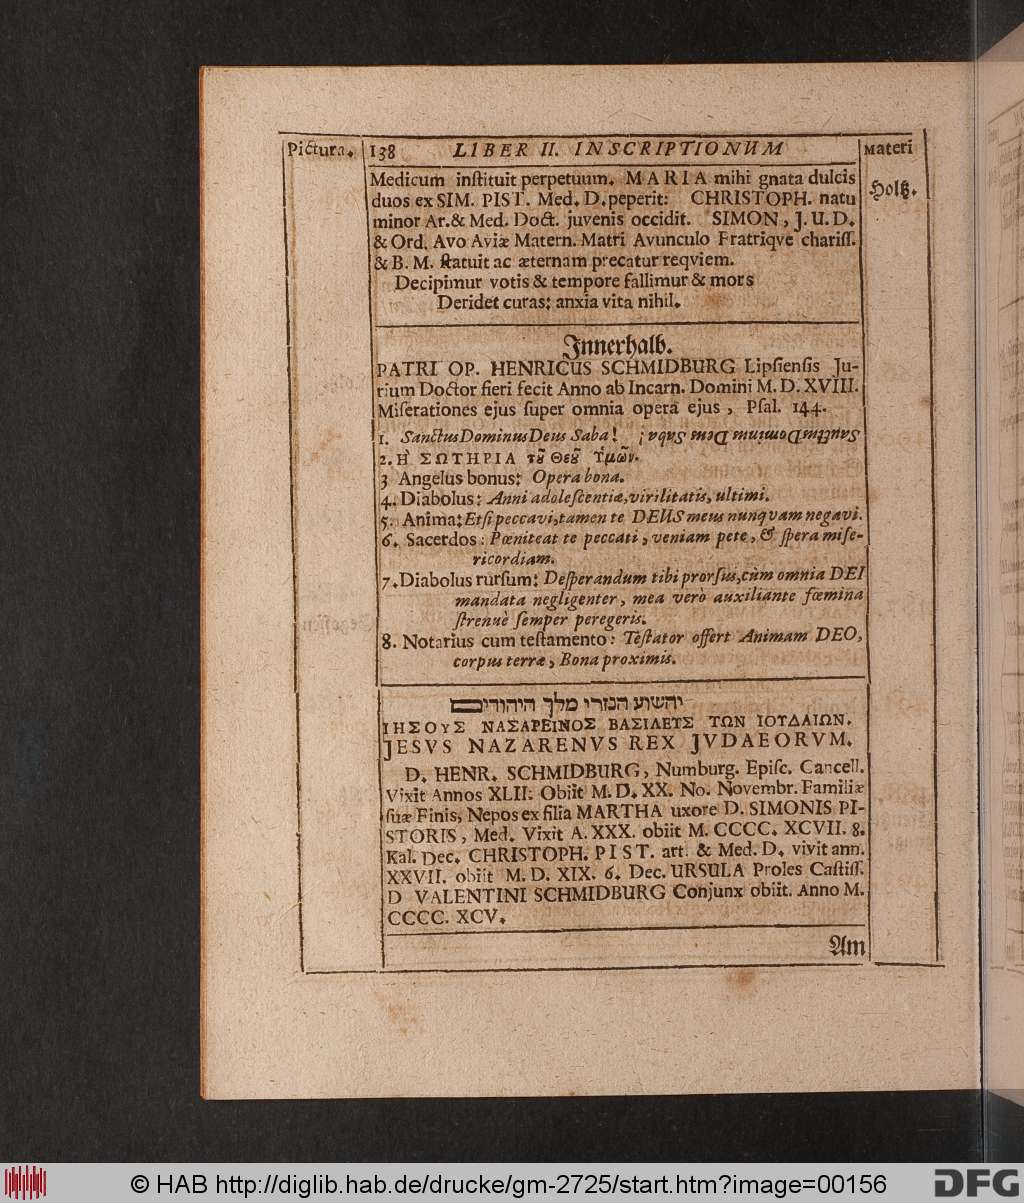 Pictura. 138 LIBER II. INSCRIPTIONUM Materi
Holtz.
Medicum inſtituit perpetuum. MARIA mihi gnata dulcis
duos ex SIM. PIST. Med. D. peperit: CHRISTOPH. natu
minor Ar. & Med. Doct. juvenis occidit. SIMON, J. U. D.
& Ord. Avo Aviæ Matern. Matri Avunculo Fratriqve chariſſ.
& B. M. ſtatuit ac æternam precatur reqviem.
Decipimur votis & tempore fallimur & mors
Deridet curas; anxia vita nihil.
Innerhalb.
PATRI OP. HENRICUS SCHMIDBURG Lipſienſis Ju-
rium Doctor fieri fecit Anno ab Incarn. Domini M. D. XVIII.
Miſerationes ejus ſuper omnia opera ejus, Pſal. 144.
1. Sanctus Dominus Deus Saba! Sanctum Dominum Deum Saba!
2. Ἡ ΣΩΤΗΡΙΑ τȣ̃ Θεȣ̃ Ὑμῶν.
3 Angelus bonus: Opera bona.
4. Diabolus: Anni adoleſcentiæ, virilitatis, ultimi.
5. Anima: Etſi peccavi, tamen te DEUS meus nunqvam negavi.
6. Sacerdos: Pœniteat te peccati, veniam pete, & ſpera miſe-
ricordiam.
7. Diabolus rurſum: Deſperandum tibi prorſus, cùm omnia DEI
mandata negligenter, mea verò auxiliante fœmina
ſtrenuè ſemper peregeris.
8. Notarius cum teſtamento: Teſtator offert Animam DEO,
corpus terræ, Bona proximis.
יהשוע הנזרי מלך היהודים
ΙΗΣΟΥΣ ΝΑΣΑΡΕΙΝΟΣ ΒΑΣΙΛΕΥΣ ΤΩΝ ΙΟΥΔΑΙΩΝ.
JESVS NAZARENVS REX JVDAEORVM.
D. HENR. SCHMIDBURG, Numburg. Epiſc. Cancell.
Vixit Annos XLII: Obiit M. D. XX. No. Novembr. Familiæ
ſuæ Finis, Nepos ex filia MARTHA uxore D. SIMONIS PI-
STORIS, Med. Vixit A. XXX. obiit M. CCCC. XCVII. 8.
Kal. Dec. CHRISTOPH. PIST. art. & Med. D. vivit ann.
XXVII. obiit M. D. XIX. 6. Dec. URSULA Proles Caſtiſſ.
D VALENTINI SCHMIDBURG Conjunx obiit. Anno M.
CCCC. XCV.
Am
© HAB http://diglib.hab.de/drucke/gm-2725/start.htm?image=00156
DFG